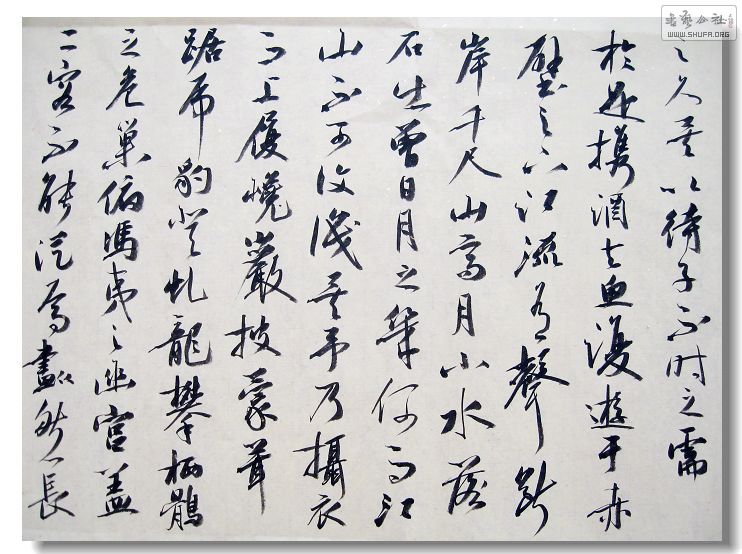 之久矣以待子不时之需
於是携酒与魚復遊于赤
壁之下江流有聲断
岸千尺山高月小水落
石出曾日月之幾何而江
山不可復識矣予乃攝衣
而上履巉巖披蒙茸
踞虎豹登虬龍攀栖鶻
之危巢俯馮夷之幽宮蓋
二客不能從焉劃然長
书艺公社
WWW.SHUFA.ORG